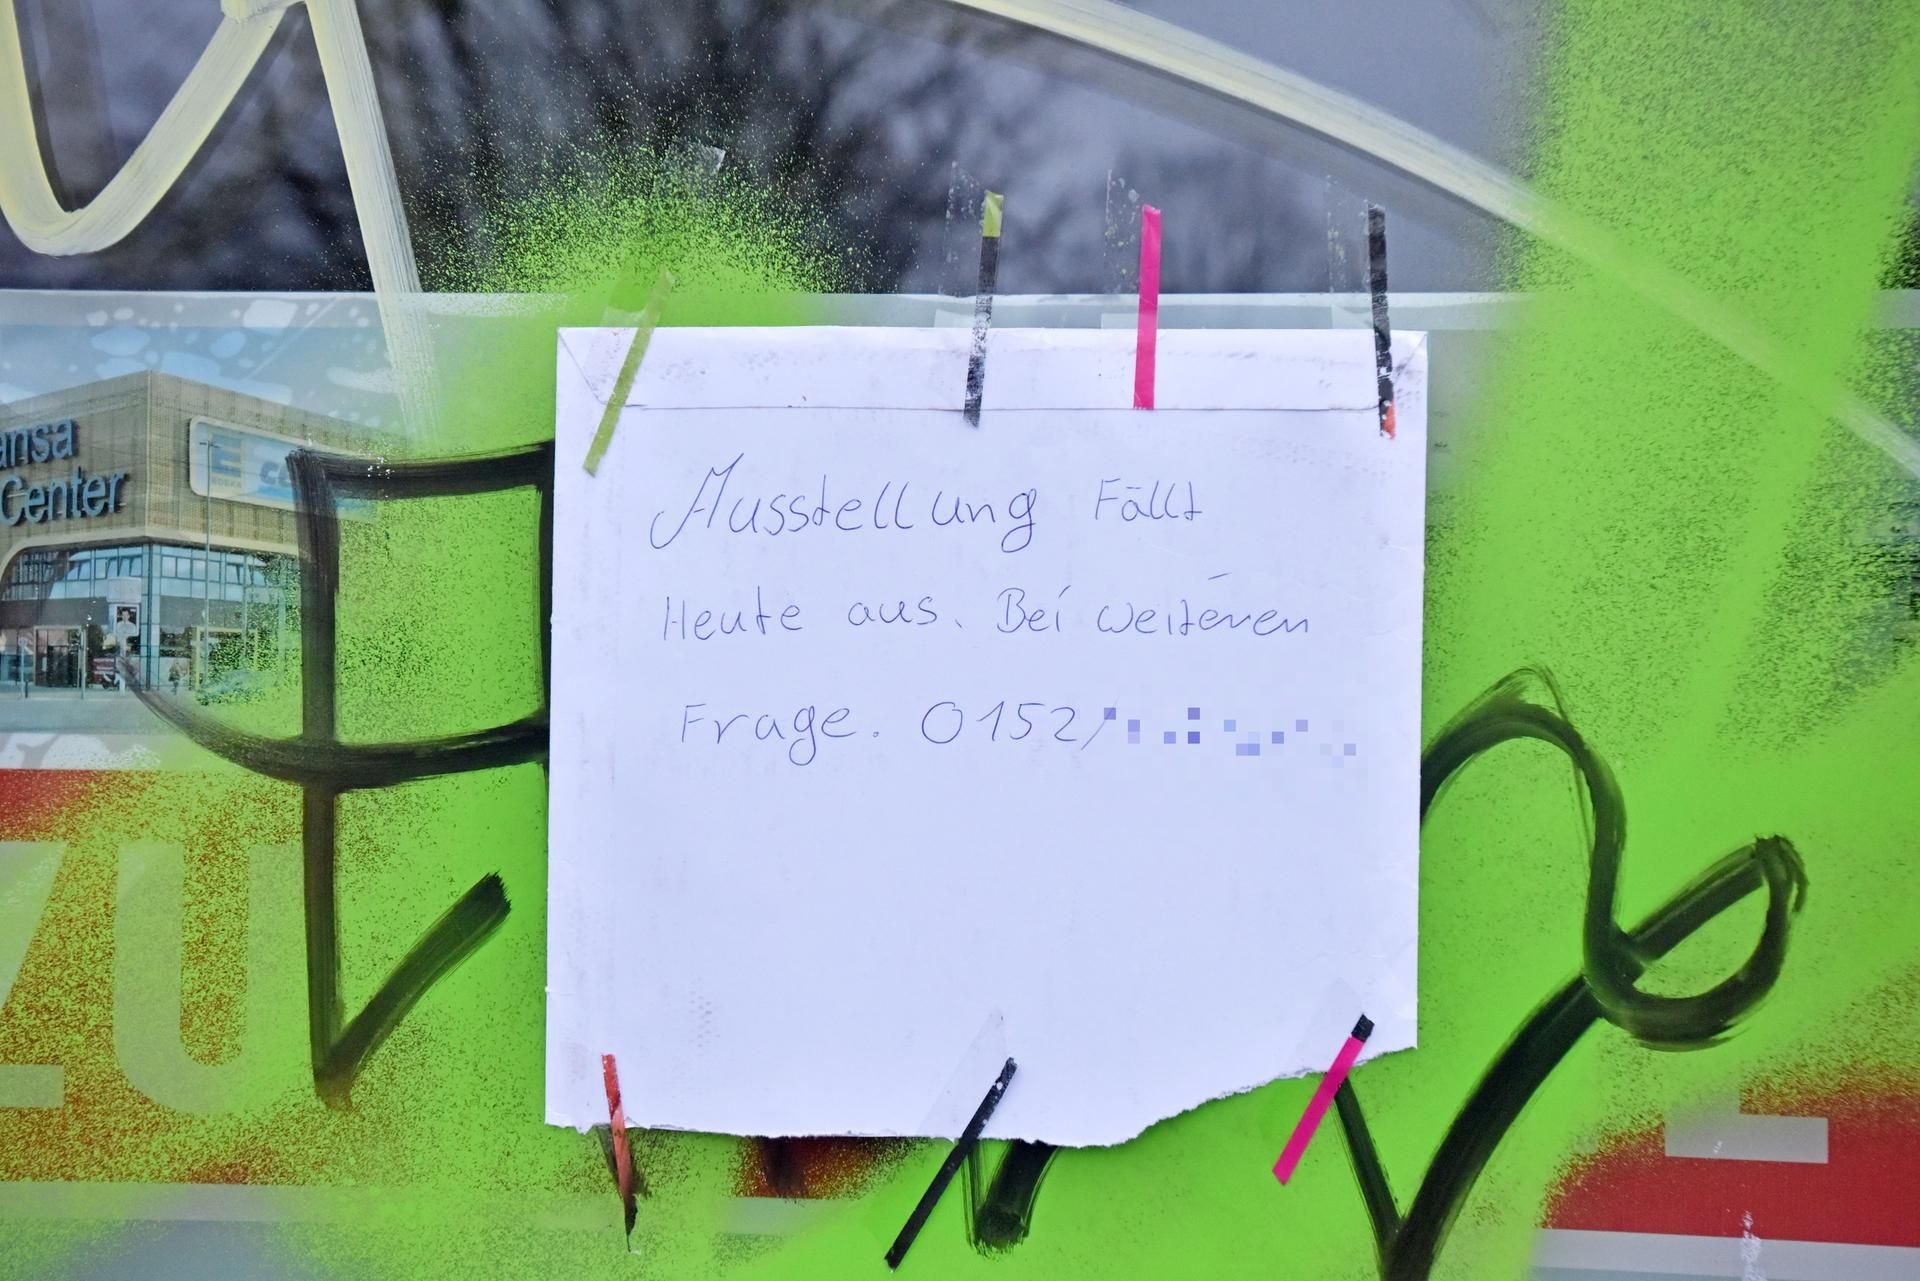 ansa
Center
E
EDEKA
Ausstellung Fällt
Heute aus. Bei weiteren
Frage. 0152/
ZU